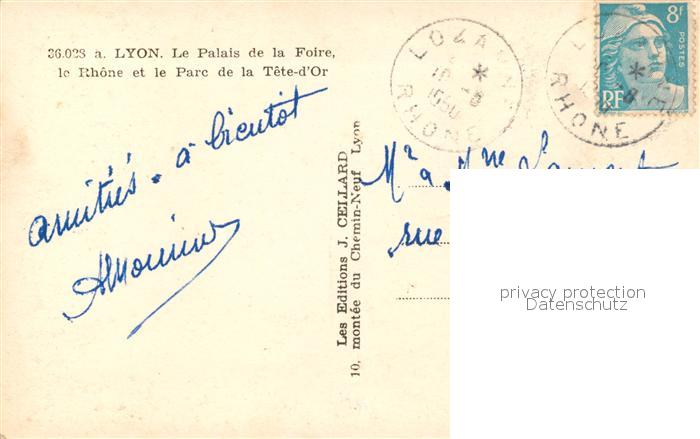 36.028 a. LYON. Le Palais de la Foire,
le Rhône et le Parc de la Tête-d'Or
amitiés. à bientot
Les Editions J. CELLARD
10, montée du Chemin-Neuf Lyon
LOZANNE
RHONE
LOZANNE
RHONE
8f
POSTES
RF
Mr & Mme
rue
privacy protection
Datenschutz